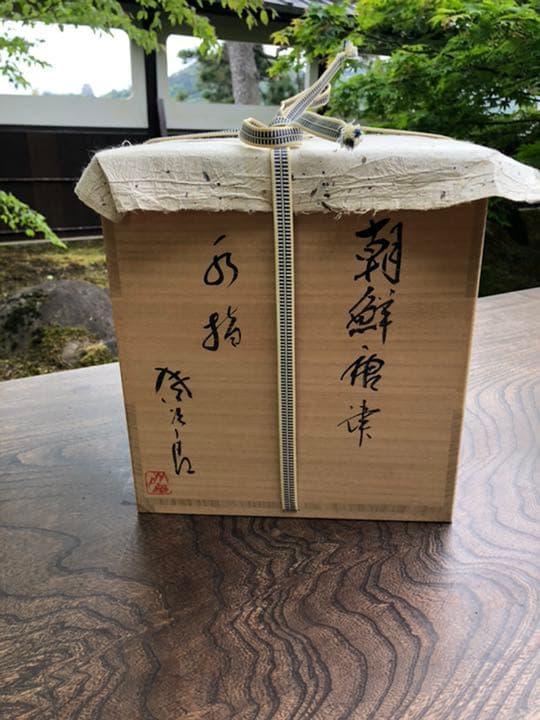 朝鮮唐津
水指